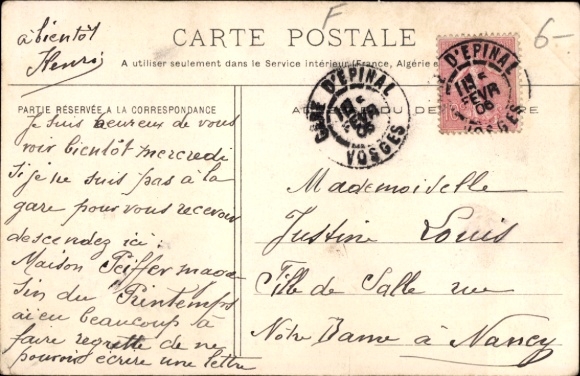 F
6-
à bientôt
Henri
CARTE POSTALE
A utiliser seulement dans le Service intérieur (France, Algérie e
PARTIE RÉSERVÉE A LA CORRESPONDANCE
Je suis heureux de vous
voir bientôt mercredi
Si je ne suis pas à la
gare pour vous recevoir
descendez ici :
Maison Peiffer maga
sin du Printemps
ai eu beaucoup à
faire regrette de ne
pouvoir écrire une lettre
GARE D'EPINAL
FEVR
06
VOSGES
D'EPINAL
FEVR
06
VOSGES
Mademoiselle
Justine Louis
de Salle rue
Notre Dame à Nancy